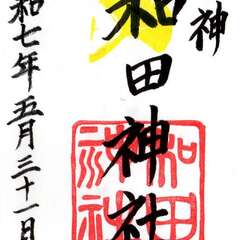 神
和田神社
和七年五月三十一日
和田
神社